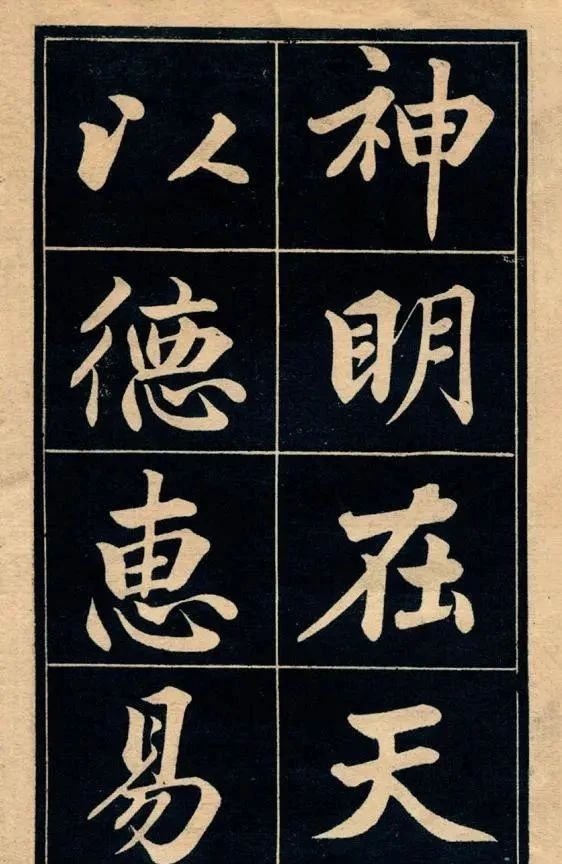 神明在天
以德惠易